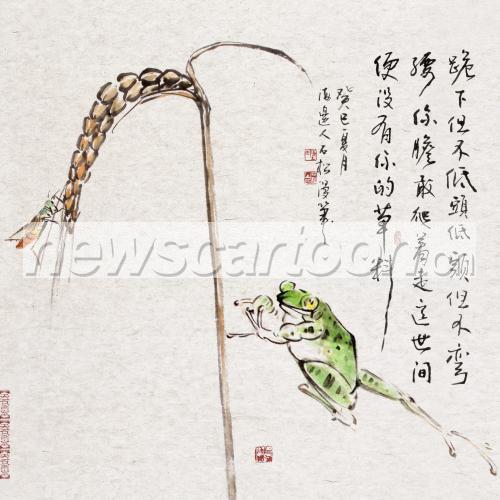 跪下但不低頭低頭但不彎
腰你膽敢爬着走這世间
便没有你的草料
癸巳夏月
海邊人石松漫筆
newscartoon.cn